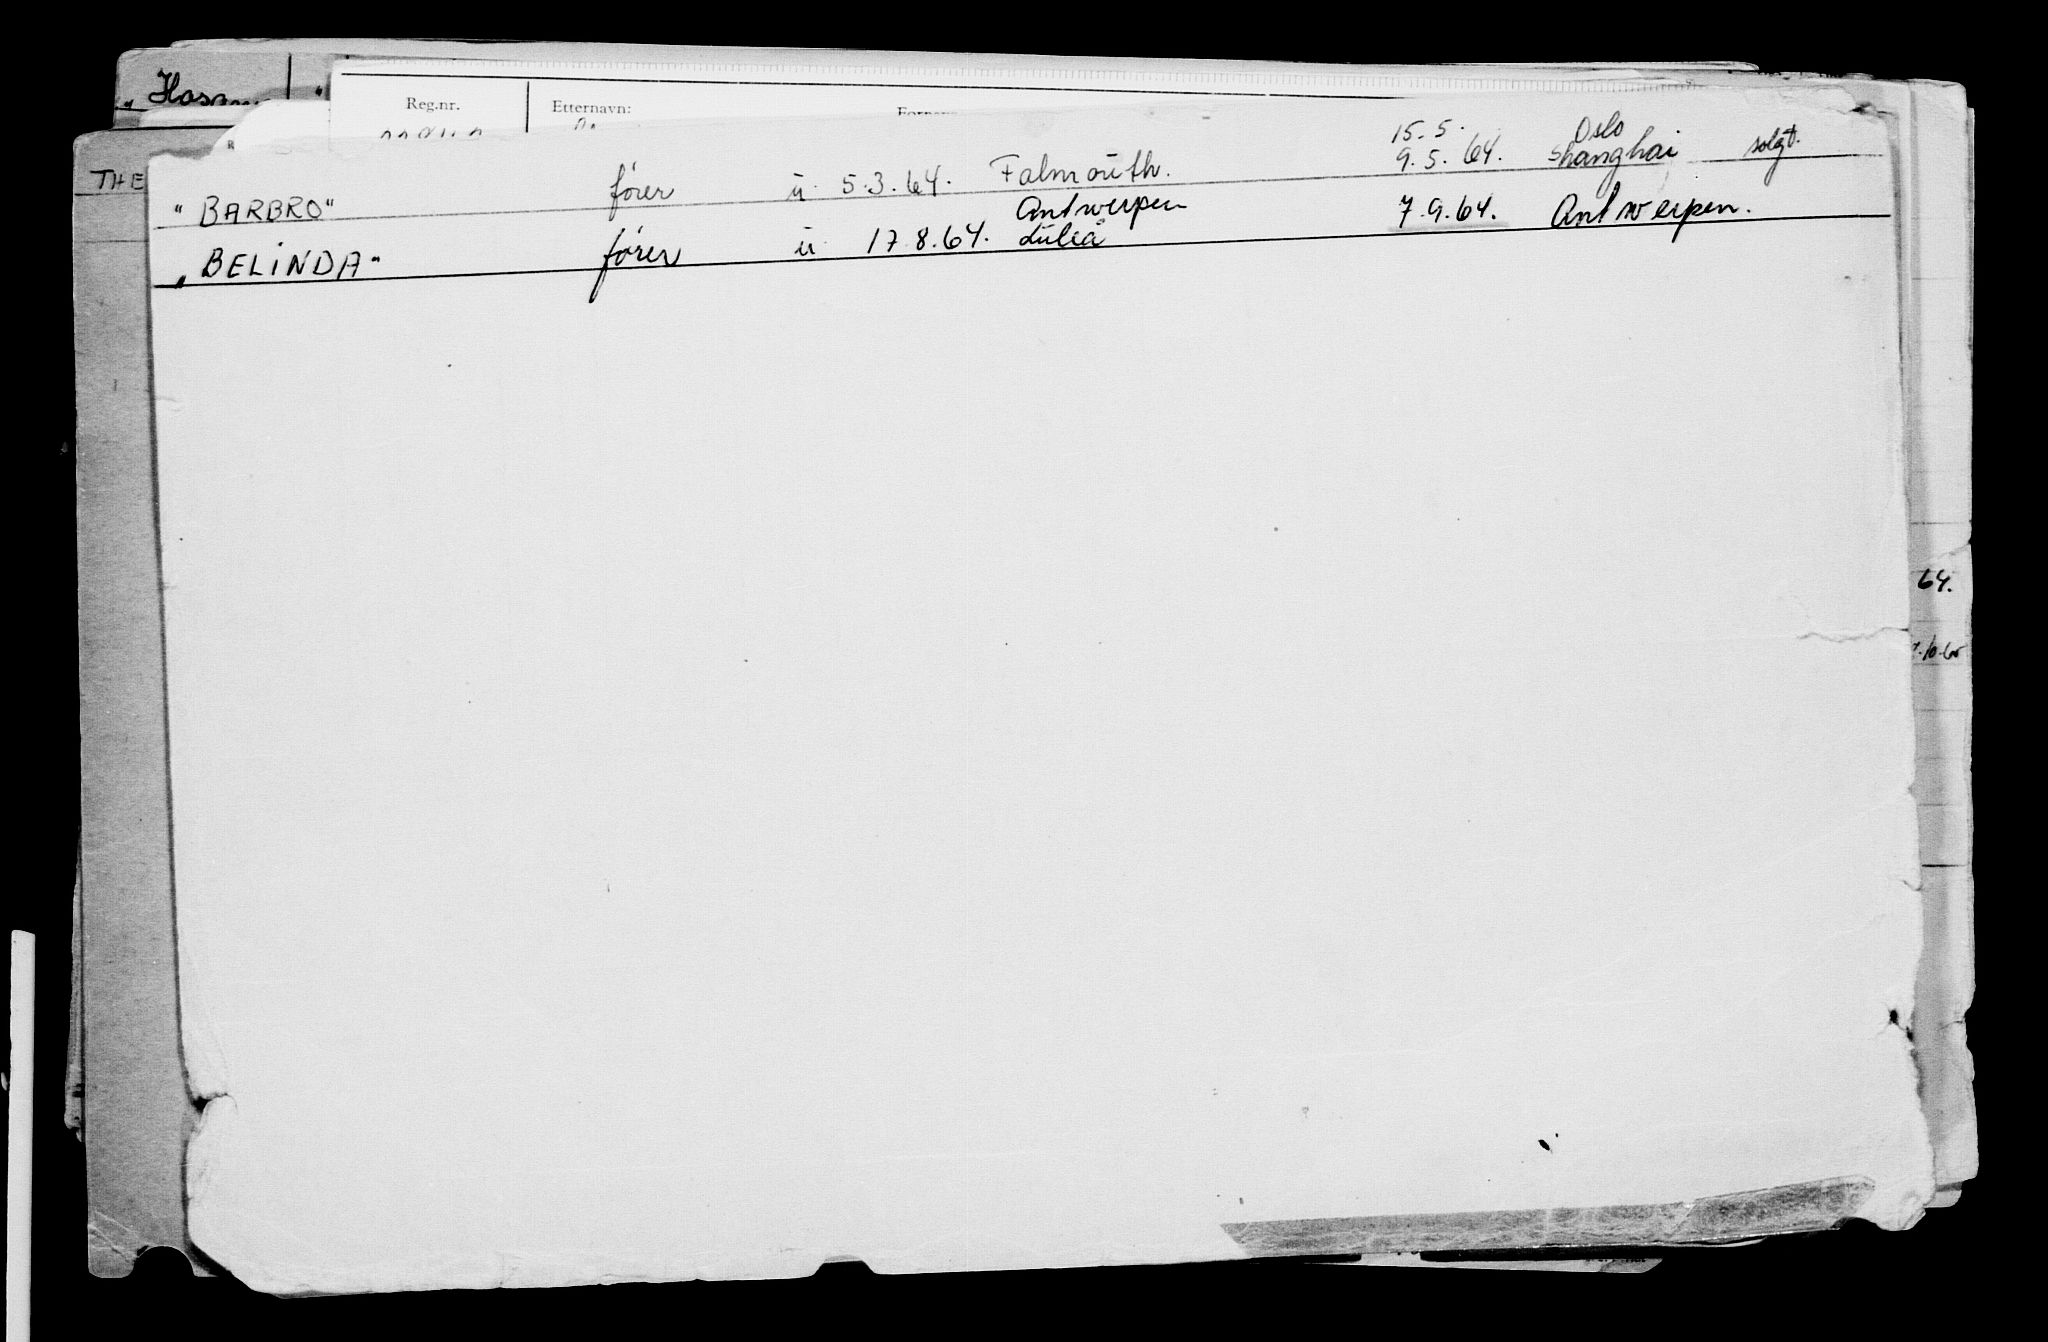 Reg.nr. Etternavn:
THE
15.5. Oslo
"BARBRO" fører u. 5.3.64. Falmouth. 9.5.64. Shanghai solgt.
Antwerpen
"BELINDA" fører u. 17.8.64. Luleå 7.9.64. Antwerpen.
64.